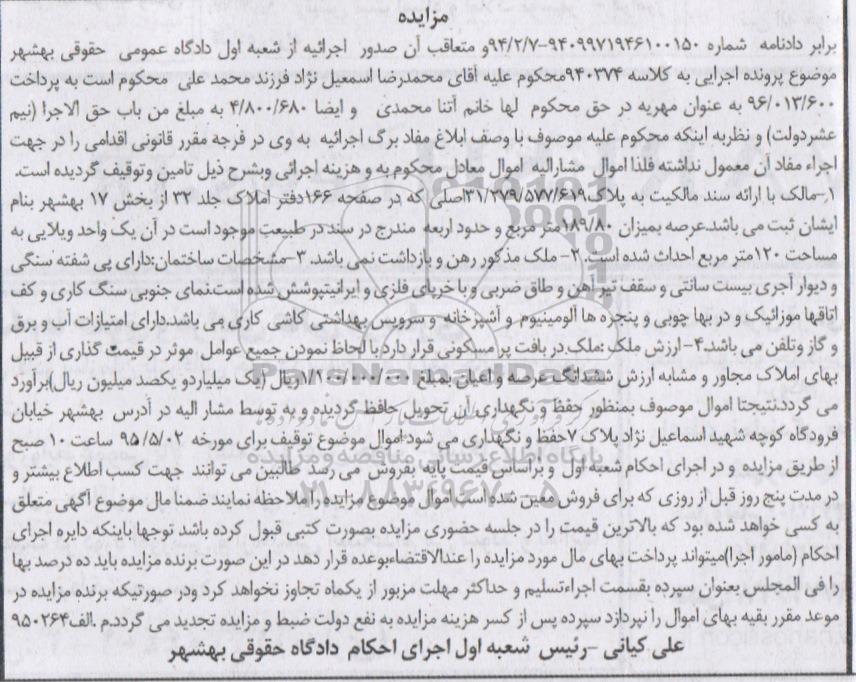 مزایده
برابر دادنامه شماره ۹۴۰۹۹۷۱۹۴۶۱۰۰۱۵۰-۹۴/۲/۷و متعاقب آن صدور اجرائیه از شعبه اول دادگاه عمومی حقوقی بهشهر
موضوع پرونده اجرایی به کلاسه ۹۴۰۳۷۴محکوم علیه آقای محمدرضا اسمعیل نژاد فرزند محمد علی محکوم است به پرداخت
۹۶/۰۱۳/۶۰۰ به عنوان مهریه در حق محکوم لها خانم آتنا محمدی و ایضا ۴/۸۰۰/۶۸۰ به مبلغ من باب حق الاجرا (نیم
عشردولت) و نظربه اینکه محکوم علیه موصوف با وصف ابلاغ مفاد برگ اجرائیه به وی در فرجه مقرر قانونی اقدامی را در جهت
اجراء مفاد آن معمول نداشته فلذا اموال مشارالیه اموال معادل محکوم به و هزینه اجرائی وبشرح ذیل تامین وتوقیف گردیده است.
۱-مالک با ارائه سند مالکیت به پلاک۳۱/۲۷۹/۵۷۷/۶۱۹اصلی که در صفحه ۱۶۶دفتر املاک جلد ۳۲ از بخش ۱۷ بهشهر بنام
ایشان ثبت می باشد.عرصه بمیزان ۱۸۹/۸۰متر مربع و حدود اربعه مندرج در سند در طبیعت موجود است در آن یک واحد ویلایی به
مساحت ۱۲۰متر مربع احداث شده است. ۲- ملک مذکور رهن و بازداشت نمی باشد. ۳-مشخصات ساختمان:دارای پی شفته سنگی
و دیوار آجری بیست سانتی و سقف تیرآهن و طاق ضربی و با خرپای فلزی و ایرانیتپوشش شده است.نمای جنوبی سنگ کاری و کف
اتاقها موزائیک و در بها چوبی و پنجره ها آلومینیوم و آشپزخانه و سرویس بهداشتی کاشی کاری می باشد.دارای امتیازات آب و برق
و گاز وتلفن می باشد.۴-ارزش ملک :ملک در بافت پر مسکونی قرار دارد با لحاظ نمودن جمیع عوامل موثر در قیمت گذاری از قبیل
بهای املاک مجاور و مشابه ارزش ششدانگ عرصه و اعیان بمبلغ ریال (یک میلیاردو یکصد میلیون ریال)برآورد
می گردد.نتیجتا اموال موصوف بمنظور حفظ و نگهداری آن تحویل حافظ گردیده و به توسط مشار الیه در آدرس بهشهر خیابان
فرودگاه کوچه شهید اسماعیل نژاد پلاک ۷حفظ و نگهداری می شود اموال موضوع توقیف برای مورخه ۹۵/۵/۰۲ ساعت ۱۰ صبح
از طریق مزایده و در اجرای احکام شعبه اول و براساس قیمت پایه بفروش می رسد طالبین می توانند جهت کسب اطلاع بیشتر و
در مدت پنج روز قبل از روزی که برای فروش معین شده است اموال موضوع مزایده را ملاحظه نمایند ضمنا مال موضوع آگهی متعلق
به کسی خواهد شده بود که بالاترین قیمت را در جلسه حضوری مزایده بصورت کتبی قبول کرده باشد توجها باینکه دایره اجرای
احکام (مامور اجرا)میتواند پرداخت بهای مال مورد مزایده را عندالاقتضاءبوعده قرار دهد در این صورت برنده مزایده باید ده درصد بها
را فی المجلس بعنوان سپرده بقسمت اجراءتسلیم و حداکثر مهلت مزبور از یکماه تجاوز نخواهد کرد ودر صورتیکه برنده مزایده در
موعد مقرر بقیه بهای اموال را نپردازد سپرده پس از کسر هزینه مزایده به نفع دولت ضبط و مزایده تجدید می گردد.م .الف۹۵۰۲۶۴
علی کیانی -رئیس شعبه اول اجرای احکام دادگاه حقوقی بهشهر